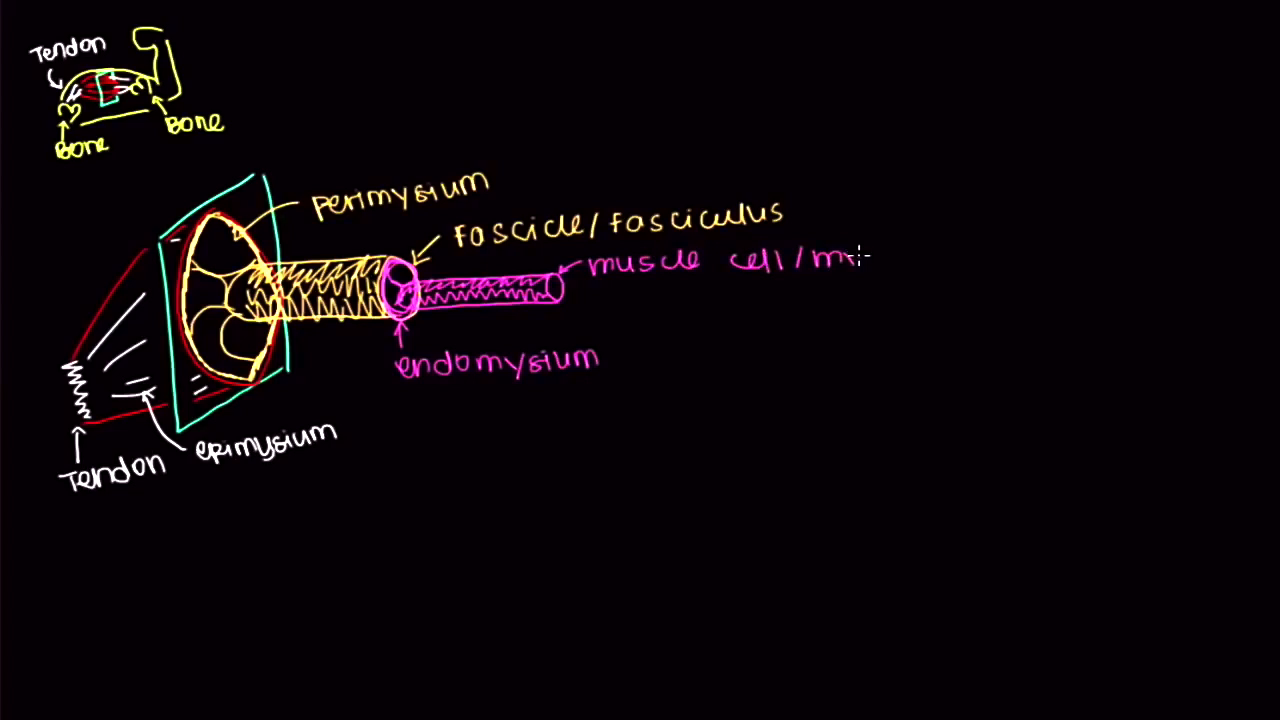 Tendon
Bone
Bone
perimysium
fascicle/fasciculus
muscle cell/m
endomysium
epimysium
Tendon